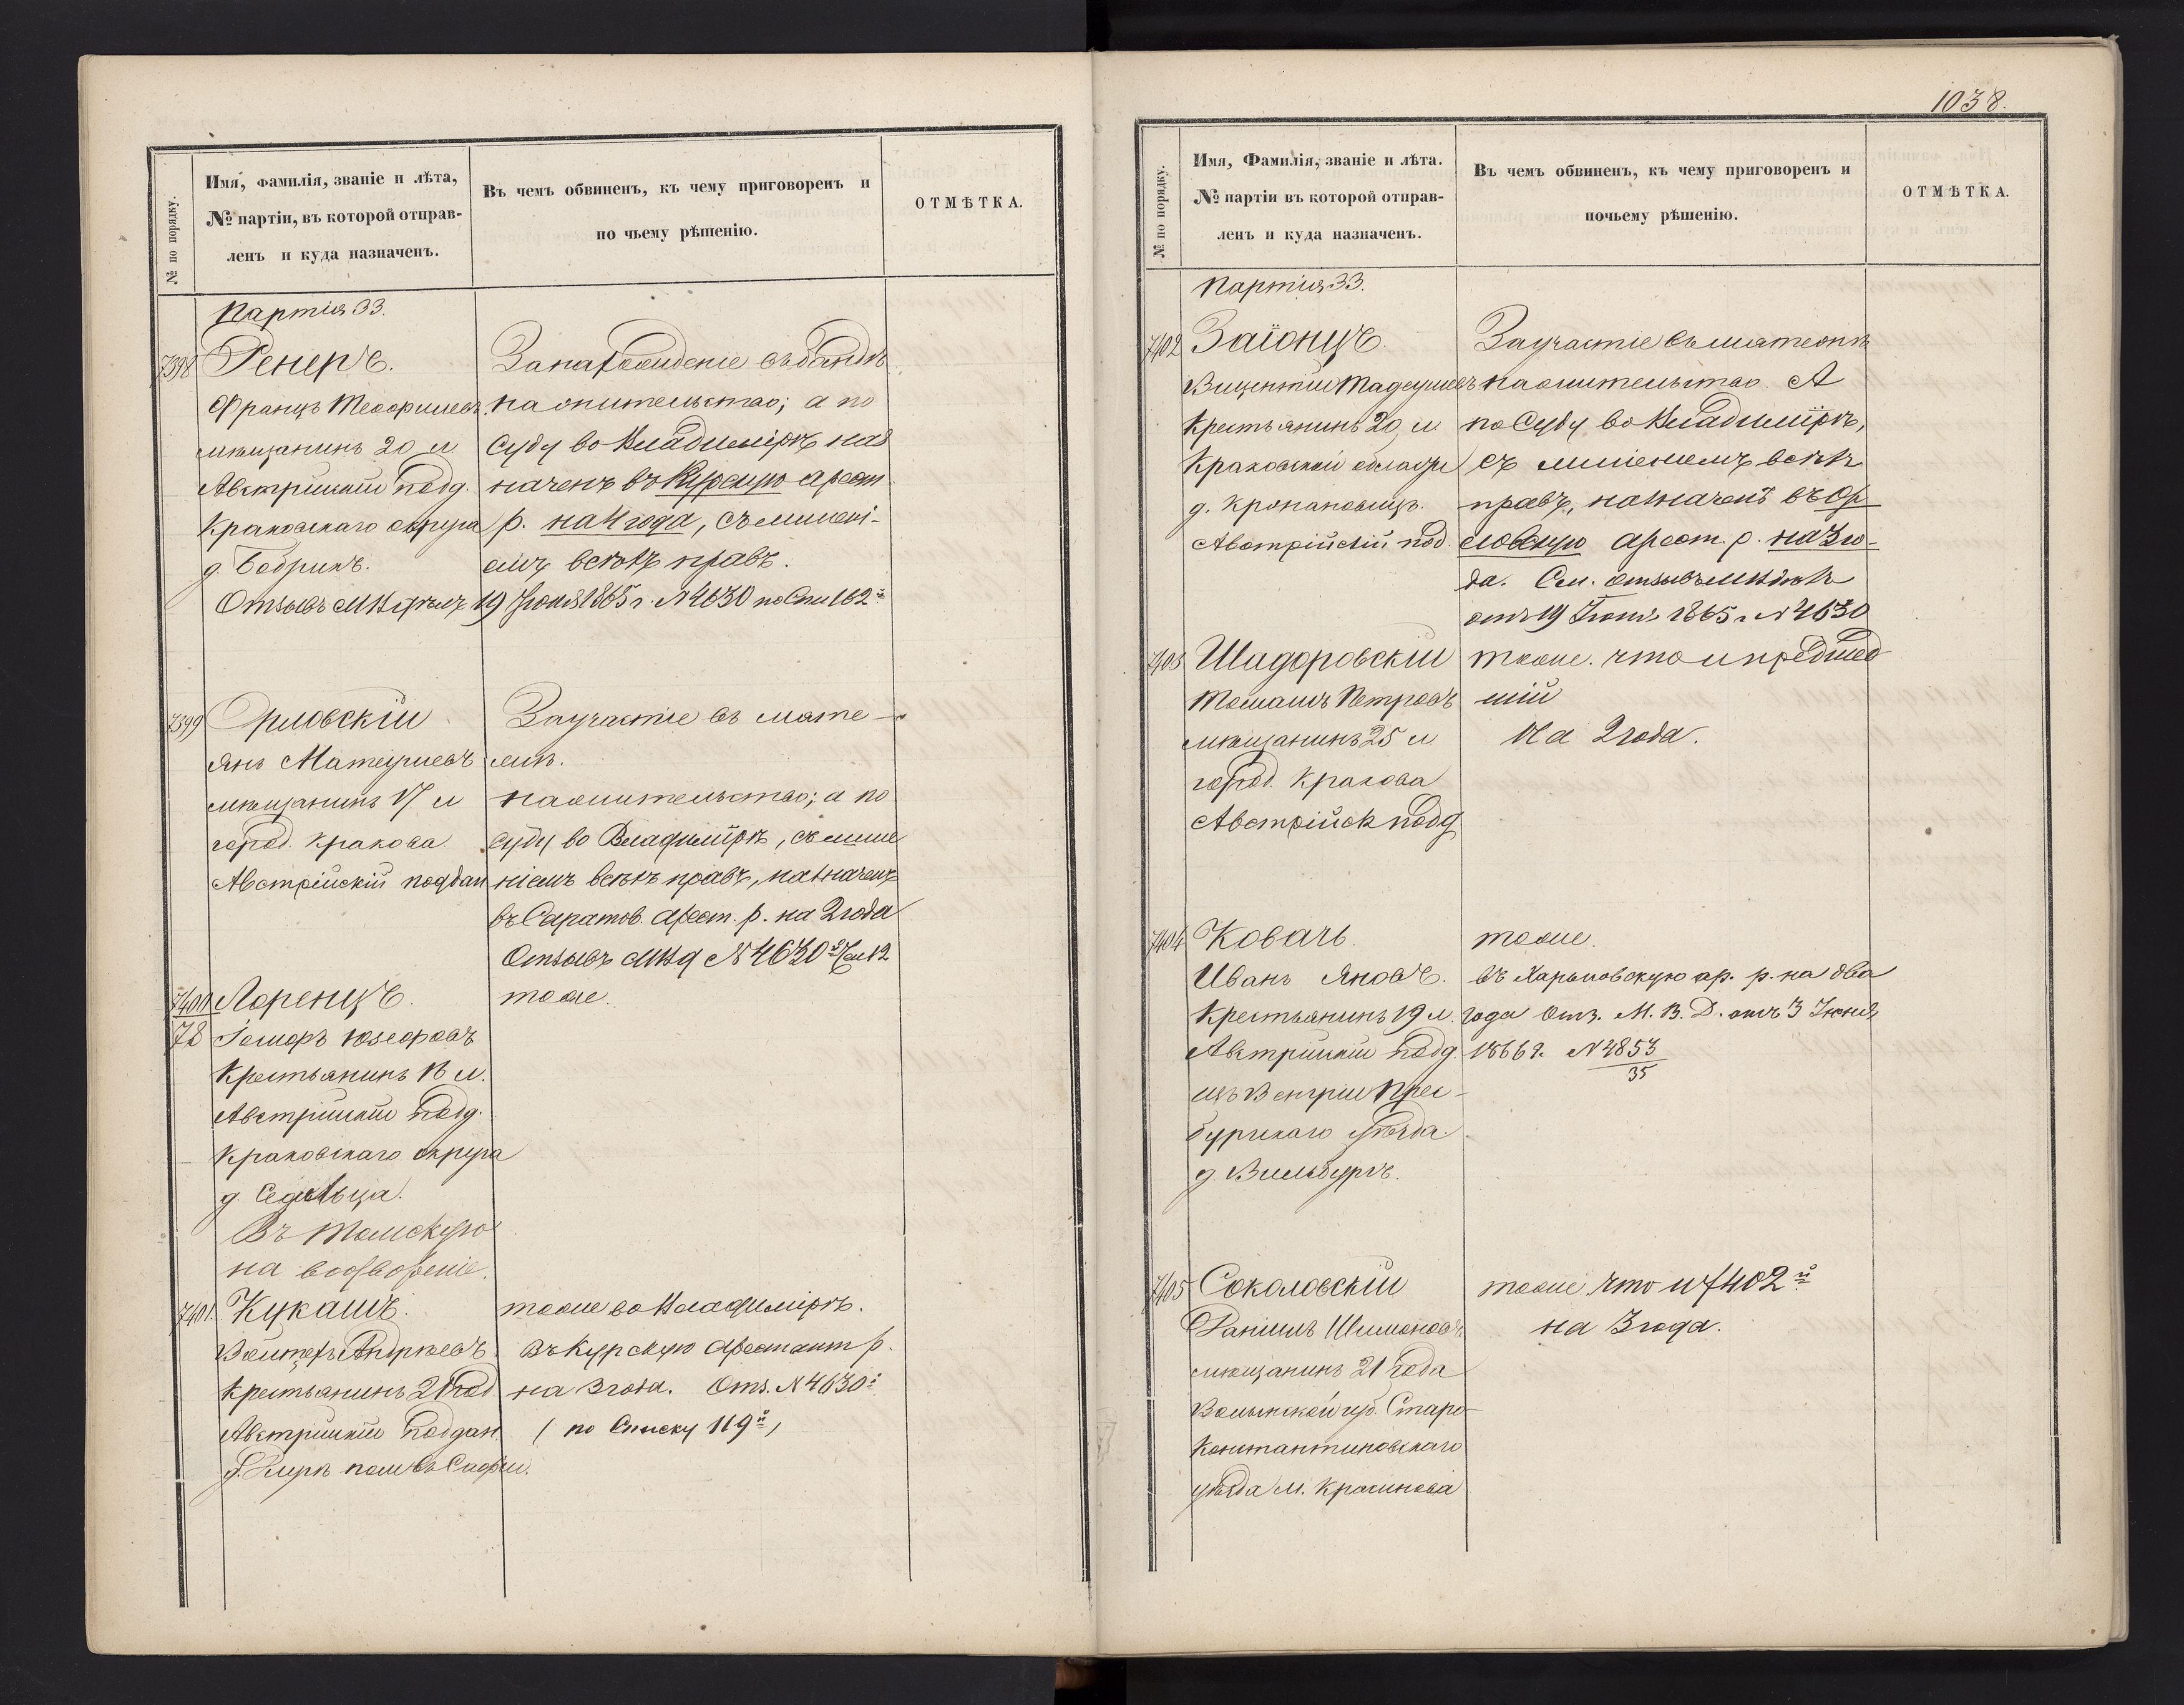 1038.
№ по порядку.
Имя, фамилія, званіе и лѣта,
№ партіи, въ которой отправ-
ленъ и куда назначенъ.
Въ чемъ обвиненъ, къ чему приговоренъ и
по чьему рѣшенію.
ОТМѢТКА.
Партія 33.
7398
Ренеръ.
Францъ Теофилевъ
мѣщанинъ 20 л
Австрійскій подд.
Краковскаго округа
д. Бобрикъ.
За нахожденіе въ бандѣ
на жительство; а по
Суду во Владимірѣ наз
наченъ въ Курскую арест
р. на 4 года, съ лишені-
емъ всѣхъ правъ.
Отзывъ 19 Іюня 1865 г. № 4630 по Спи 162й
7399
Орловскій
Янъ Матеушевъ
мѣщанинъ 17 л
город. Кракова
Австрійскій поддан
За участіе въ мяте-
жѣ.
на жительство; а по
суду во Владимірѣ, съ лише
ніемъ всѣхъ правъ, назначенъ
въ Саратов. арест. р. на 2 года
Отзывъ МВД № 4630
7400
78
Лоренцъ.
Юзефовъ
Крестьянинъ 18 л.
Австрійскій подд.
Краковскаго округа
д.
Въ Томскую
на водвореніе.
тоже.
7401.
Кукашъ.
Андреевъ
Крестьянинъ 21 год
Австрійскій поддан
д.
тоже во Владимірѣ.
Въ Курскую Арестант р.
на 3 года. Отз. № 4630й
( по Списку 119й)
№ по порядку.
Имя, Фамилія, званіе и лѣта.
№ партіи въ которой отправ-
ленъ и куда назначенъ.
Въ чемъ обвиненъ, къ чему приговоренъ и
почьему рѣшенію.
ОТМѢТКА.
Партія 33.
7402
Заіонцъ.
Вицентій Тадеушевъ
Крестьянинъ 20 л
Краковской области
д.
Австрійскій под.
За участіе въ мятежѣ
на жительство. А
по Суду во Владимірѣ,
съ лишеніемъ всѣхъ
правъ, назначенъ въ Ор
ловскую арест. р. на 3 го-
да. См. отзывъ
отъ 19 Іюня 1865 г № 4630
7403
Шадоровскій
Томашъ Петровъ
мѣщанинъ 25 л
город. Кракова
Австрійск подд
тоже. что и предшед
шій
На 2 года.
7404
Ковачъ.
Иванъ Яновъ.
Крестьянинъ 19 л.
Австрійскій подд.
изъ Венгріи Прес-
бургскаго уѣзда
д. Вильбургъ.
тоже.
въ Харьковскую ар. р. на два
года Отз. М. В. Д. отъ 3 Іюня
1866 г. № 4853
35
7405
Соколовскій
Даніилъ Шимоновъ
мѣщанинъ 21 года
Волынской губ. Старо-
Константиновскаго
уѣзда м.
тоже что и 7402й
на 3 года.